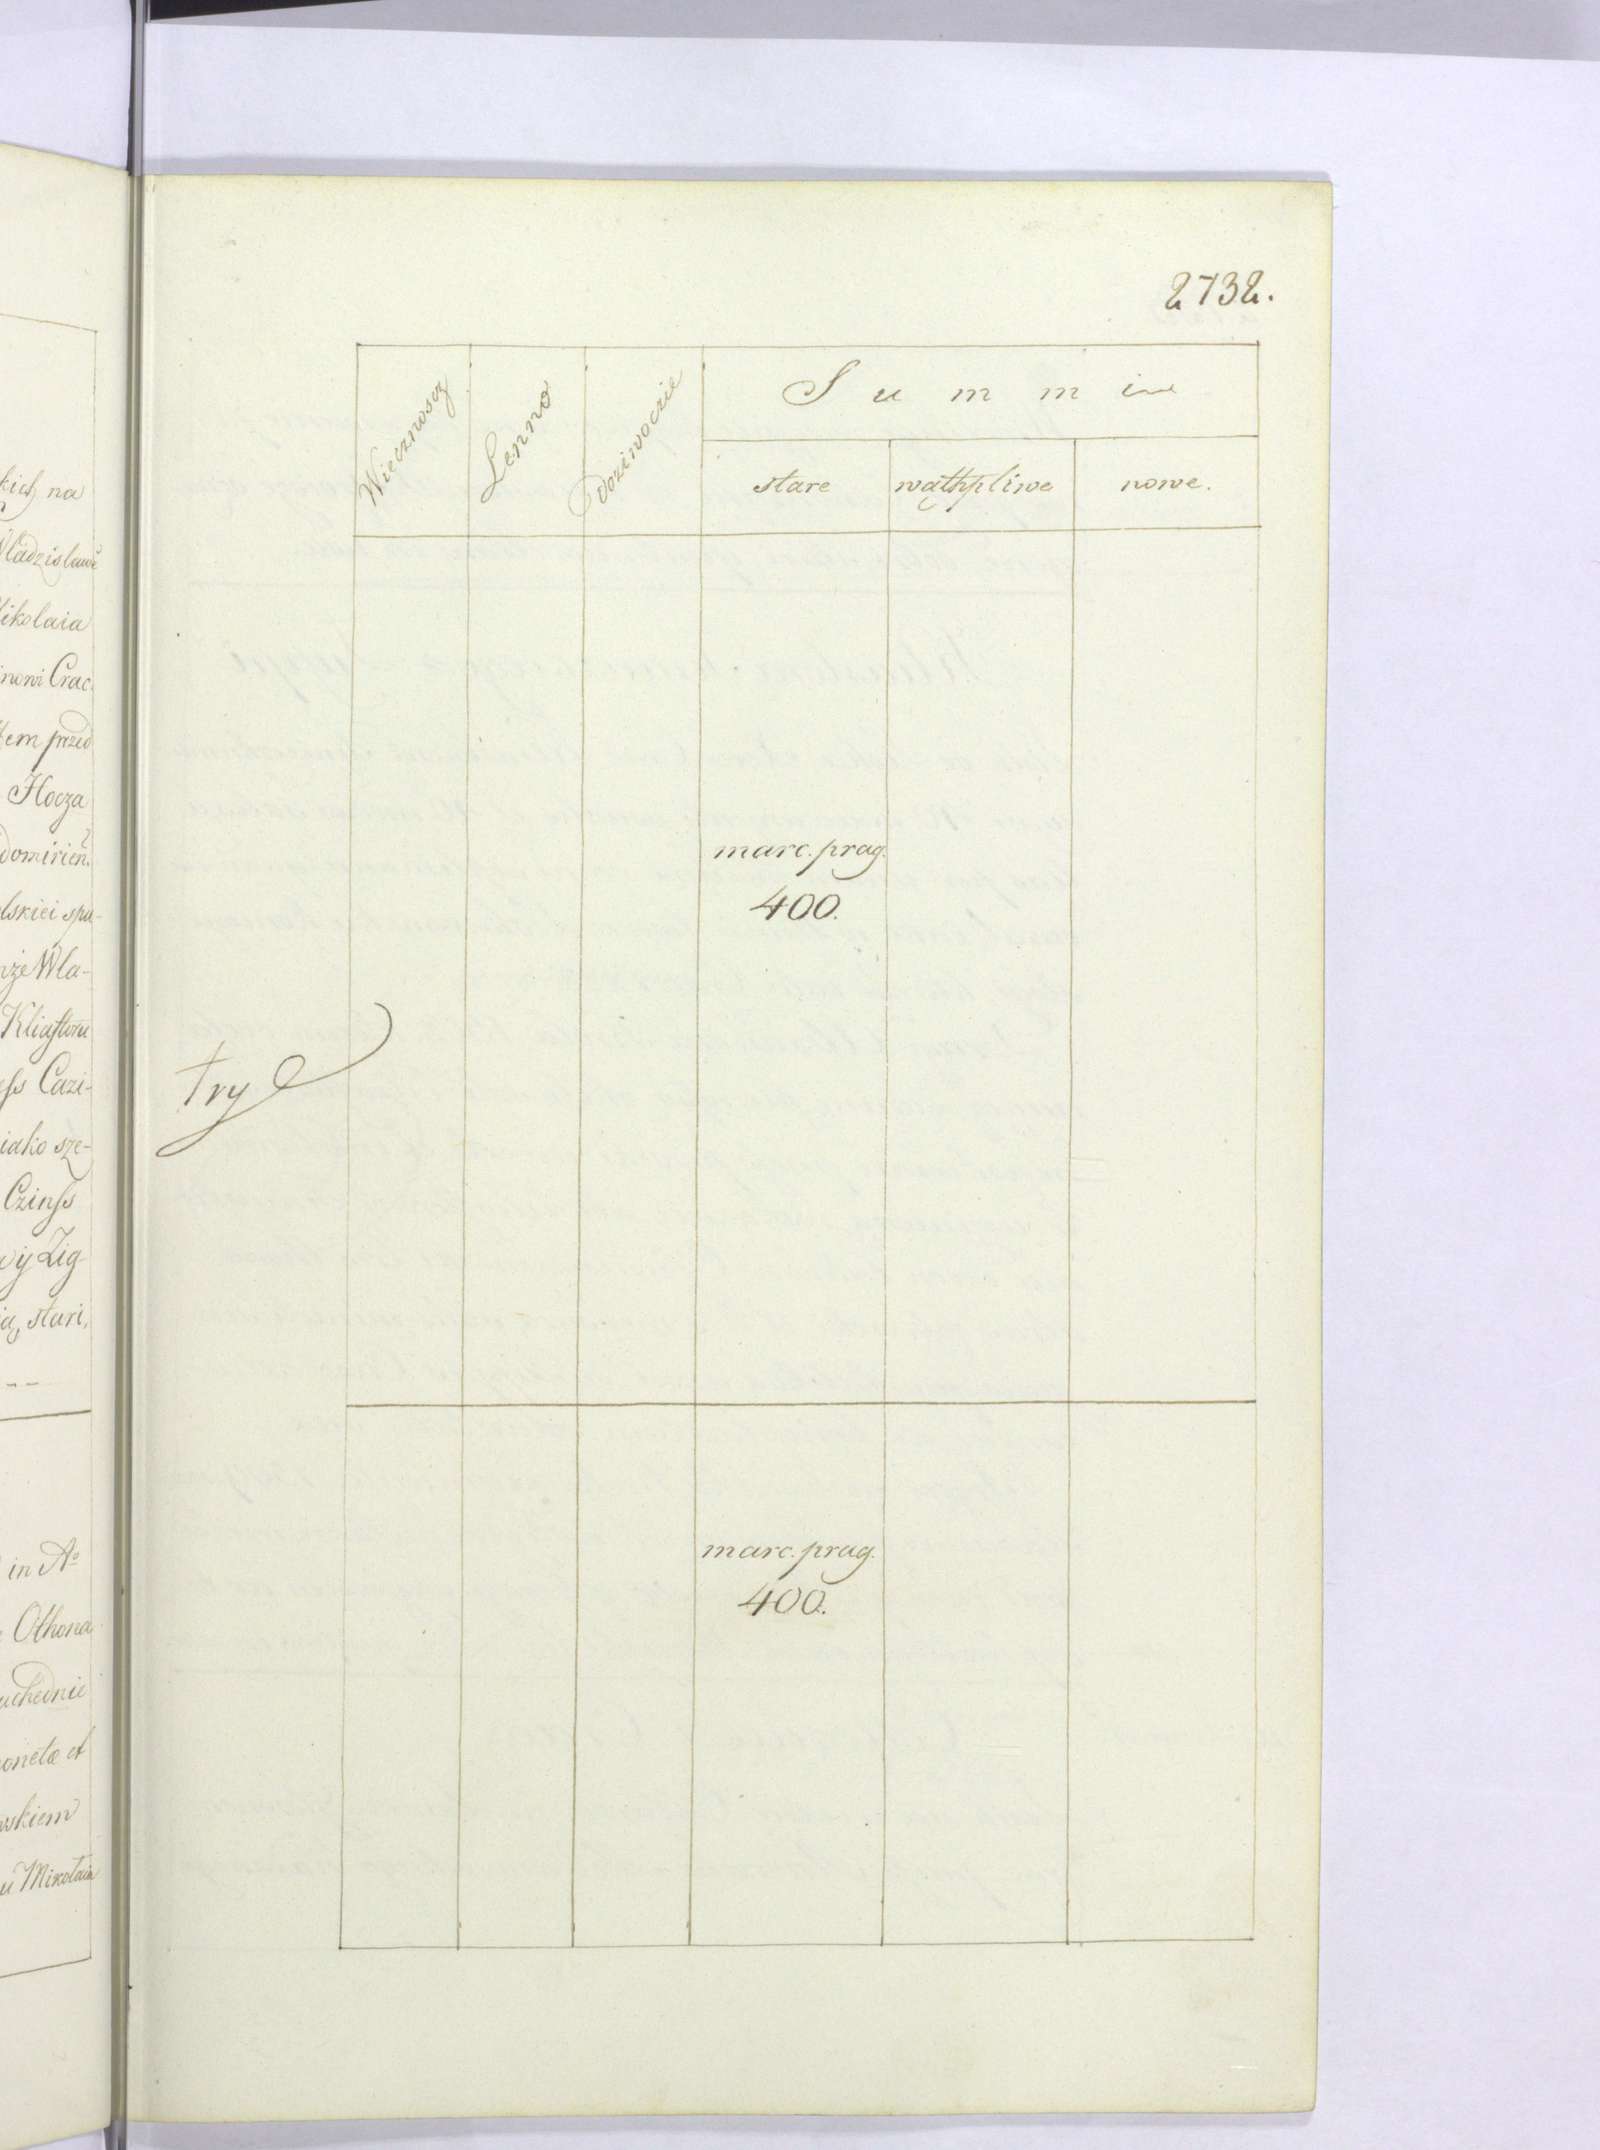 kich na
Wladzislawie
Mikolaia
nowi Crac.
tem przed
Hocza
domirien.
lskiei spu-
nże Wla-
Kliasztoru
Cazi-
iako sze-
Czinss
Zig
stari,
in Aº
Othona
onetæ et
wskiem
u Mikołaia
2732.
Wiecznoscz
Lenno
Dożiwoczie
Summe
stare
wąthpliwe
nowe.
marc. prag.
400.
try
marc. prag.
400.